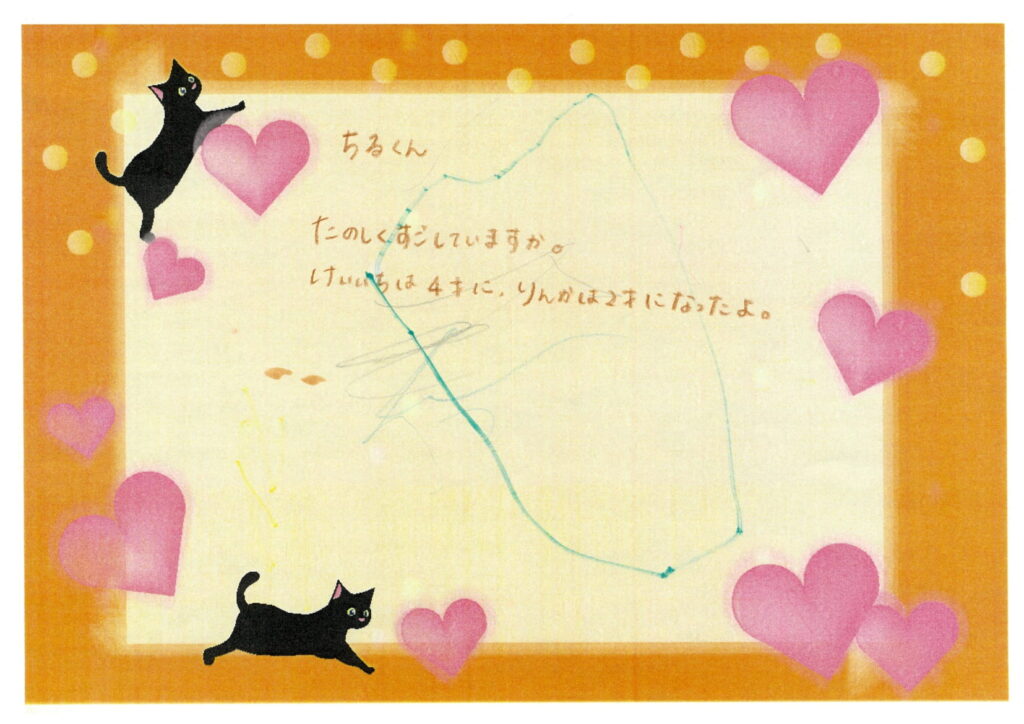 ちるくん
たのしくすごしていますか。
けいいちは4才に、りんかは2才になったよ。